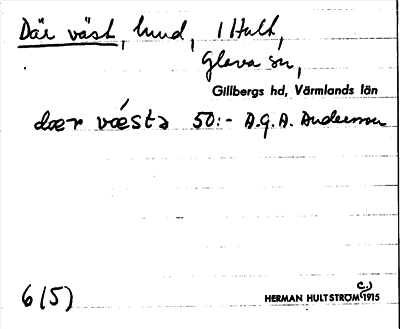 Där väst, hmd, 1 Hult,
Glava sn,
Gillbergs hd, Värmlands län
dær væ´stə 50:- A.G.A. Andersson
6(5)
c.)
HERMAN HULTSTRÖM 1915